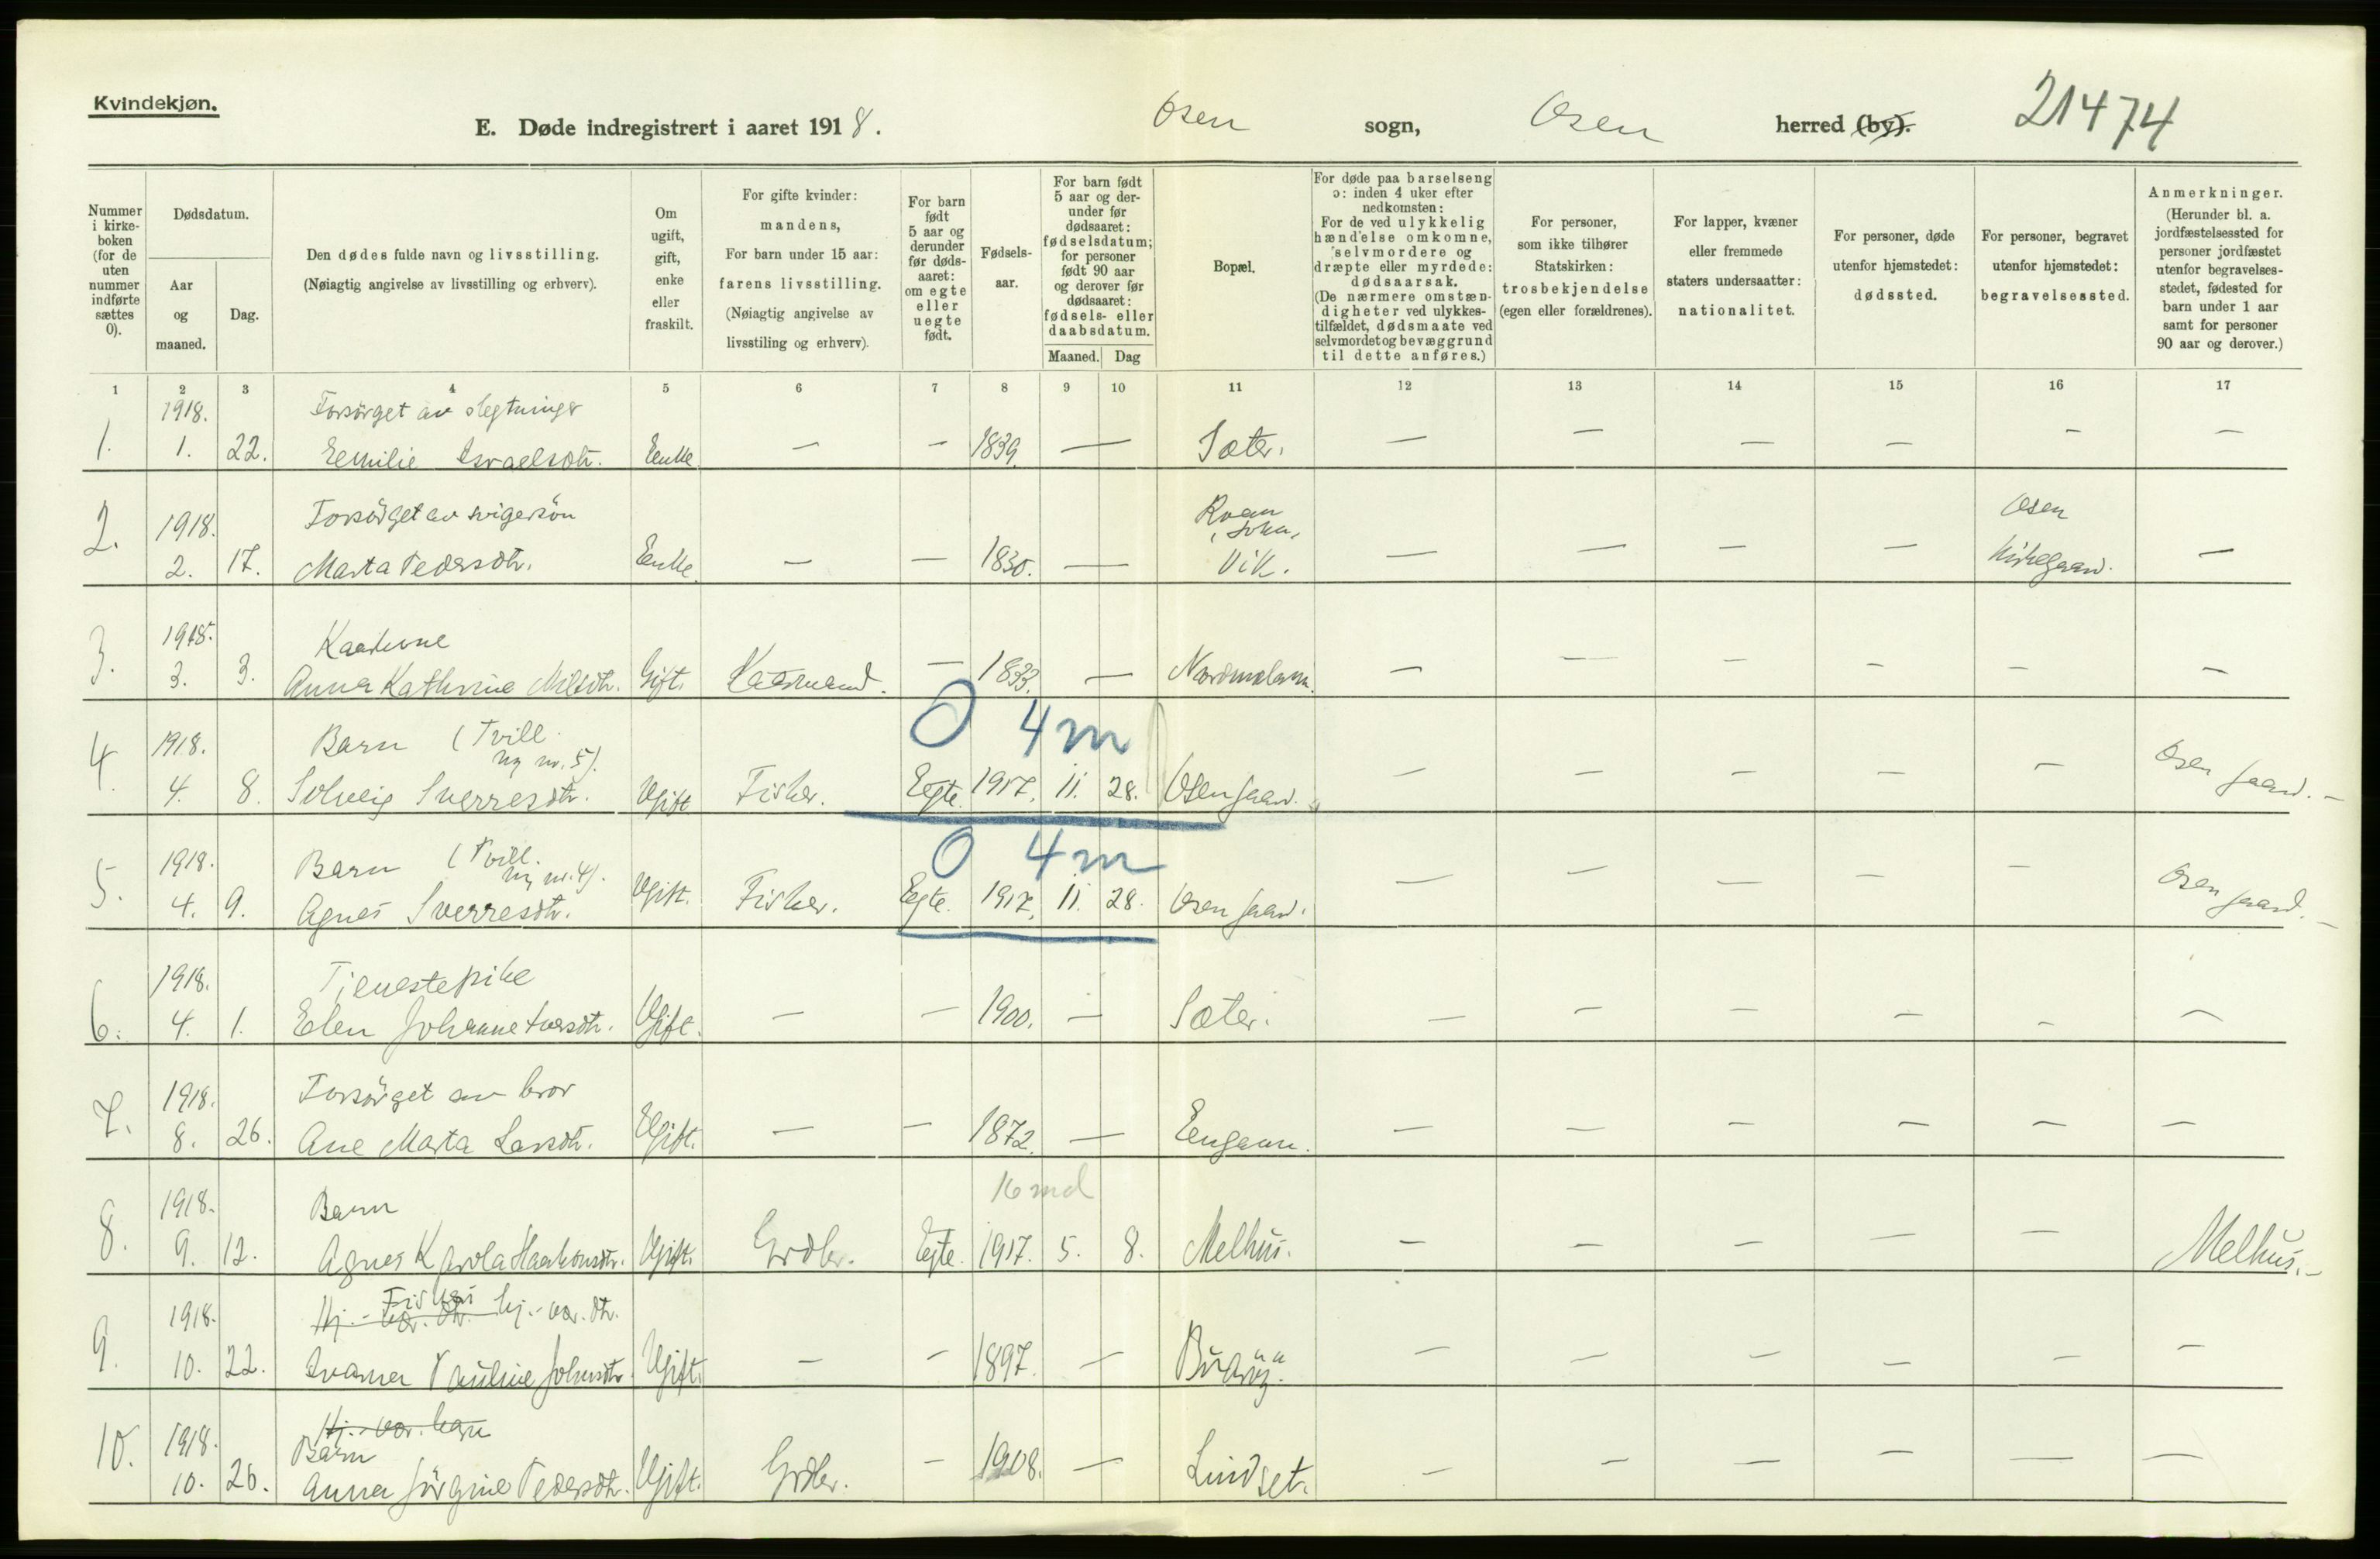 Kvindekjøn.
E. Døde indregistrert i aaret 1918.
Osen sogn, Osen herred (by).
21474
Nummer i kirke-boken (for de uten nummer indførte sættes 0).
Dødsdatum.
Aar og maaned.
Dag.
Den dødes fulde navn og livsstilling.
(Nøiagtig angivelse av livsstilling og erhverv).
Om ugift, gift, enke eller fraskilt.
For gifte kvinder: mandens, For barn under 15 aar: farens livsstilling.
(Nøiagtig angivelse av livsstiling og erhverv).
For barn født 5 aar og derunder før døds-aaret: om egte eller uegte født.
Fødsels-aar.
For barn født 5 aar og der-under før dødsaaret: fødselsdatum; for personer født 90 aar og derover før dødsaaret: fødsels- eller daabsdatum.
Maaned. Dag
Bopæl.
For døde paa barselseng ɔ: inden 4 uker efter nedkomsten:
For de ved ulykkelig hændelse omkomne, selvmordere og dræpte eller myrdede: dødsaarsak.
(De nærmere omstæn-digheter ved ulykkes-tilfældet, dødsmaate ved selvmordet og bevæggrund til dette anføres.)
For personer, som ikke tilhører Statskirken: trosbekjendelse (egen eller forældrenes).
For lapper, kvæner eller fremmede staters undersaatter: nationalitet.
For personer, døde utenfor hjemstedet: dødssted.
For personer, begravet utenfor hjemstedet: begravelsessted.
Anmerkninger.
(Herunder bl. a. jordfæstelsessted for personer jordfæstet utenfor begravelses-stedet, fødested for barn under 1 aar samt for personer 90 aar og derover.)
1 2 3 4 5 6 7 8 9 10 11 12 13 14 15 16 17
1918. Forsørget av slegtninger
1. 1. 22. Emilie Israelsdtr. Enke — — 1839. — Sæter. — — — — — —
2. 1918. Forsørget av svigersön Roan sokn, Osen
2. 17. Marta Pedersdtr. Enke — — 1830. — Vik. — — — — Kirkegaard. —
3. 1918. Kaarkone
3. 3. Anna Kathrine Nilsdtr. Gift. Kaarmand. — 1833. — — — — — — —
O 4 m
4. 1918. Barn (Tvill. nr. 5).
4. 8. Solveig Sverresdtr. Ugift Fisker. Egte. 1917. 11. 28. Osen gaard. — — — — — Osen gaard. —
O 4 m
5. 1918. Barn (Tvill. nr. 4).
4. 9. Agnes Sverresdtr. Ugift. Fisker. Egte. 1917. 11. 28. Osen gaard. — — — — — Osen gaard. —
6. 1918. Tjenestepike
4. 1. Elen Johanne Iversdtr. Ugift. — — 1900. — Sæter. — — — — — —
7. 1918. Forsørget av bror
8. 26. Ane Marta Larsdtr. Ugift. — — 1872. — — — — — — —
16 md
8. 1918. Barn
9. 12. Agnes Karola Haakonsdtr. Ugift. Grdbr. Egte. 1917. 5. 8. Melhus. — — — — — Melhus. —
Fisker
9. 1918. Hj.-vær. dtr. hj.-vær. dtr.
10. 22. Ivarna Pauline Johnsdtr Ugift. — — 1897. — — — — — — —
Hj.-vær. barn
10. 1918. Barn
10. 26. Anna Jörgine Pedersdtr. Ugift. Grdbr. — 1908. — Lindset. — — — — — —